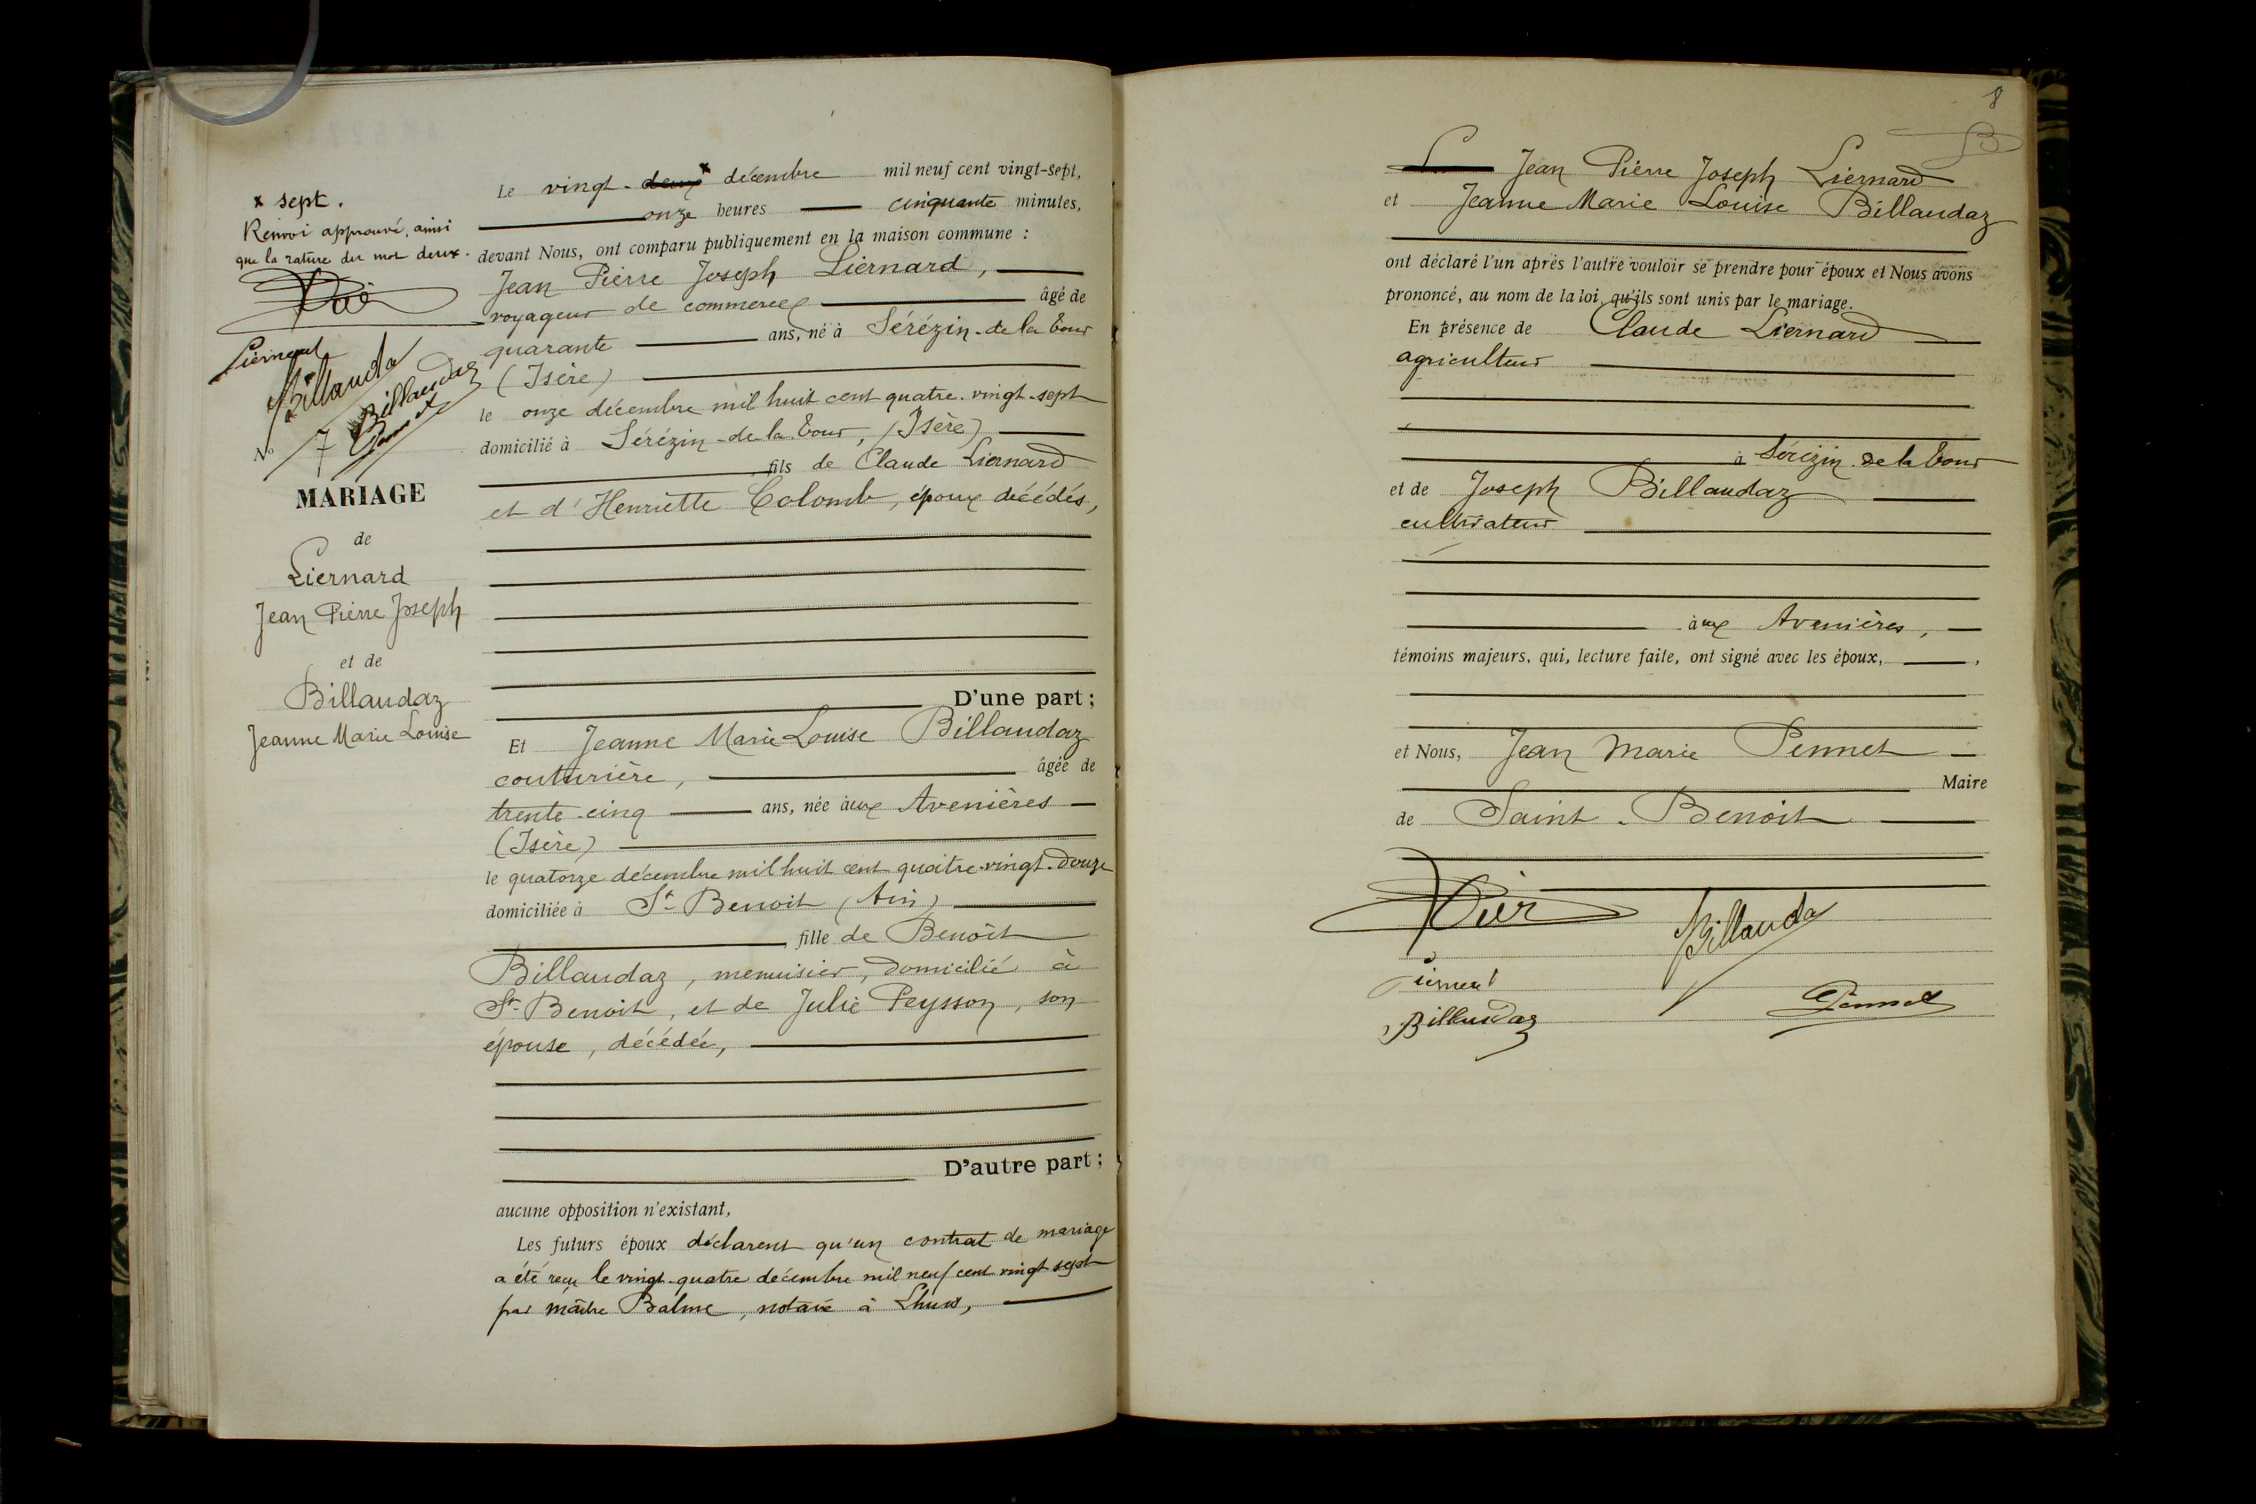 x sept.
Renvoi approuvé, ainsi
que la rature du mot deux.
Billauda
Billaudaz
Pennet
N° 7
MARIAGE
de
Liernard
Jean Pierre Joseph
et de
Billaudaz
Jeanne Marie Louise
Le vingt-deux x décembre mil neuf cent vingt-sept,
onze heures cinquante minutes,
devant Nous, ont comparu publiquement en la maison commune :
Jean Pierre Joseph Liernard,
voyageur de commerce âgé de
quarante ans, né à Sérézin-de la Tour
(Isère)
le onze décembre mil huit cent quatre-vingt-sept
domicilié à Sérézin-de la Tour, (Isère)
fils de Claude Liernard
et d'Henriette Colomb, époux décédés,
D'une part ;
Et Jeanne Marie Louise Billaudaz
couturière, âgée de
trente-cinq ans, née aux Avenières
(Isère)
le quatorze décembre mil huit cent quatre-vingt-douze
domiciliée à St-Benoit (Ain)
fille de Benoît
Billaudaz, menuisier, domicilié à
St-Benoit, et de Julie Peysson, son
épouse, décédée,
D'autre part ;
aucune opposition n'existant,
Les futurs époux déclarent qu'un contrat de mariage
a été reçu le vingt-quatre décembre mil neuf cent vingt sept
par maître Balme, notaire à Lhuis,
8
Jean Pierre Joseph Liernard
et Jeanne Marie Louise Billaudaz
ont déclaré l'un après l'autre vouloir se prendre pour époux et Nous avons
prononcé, au nom de la loi, qu'ils sont unis par le mariage.
En présence de Claude Liernard
agriculteur
à Sérézin-de la Tour
et de Joseph Billaudaz
cultivateur
aux Avenières,
témoins majeurs, qui, lecture faite, ont signé avec les époux,
et Nous, Jean Marie Pennet
Maire
de Saint-Benoit
Billauda
Billaudaz
Pennet